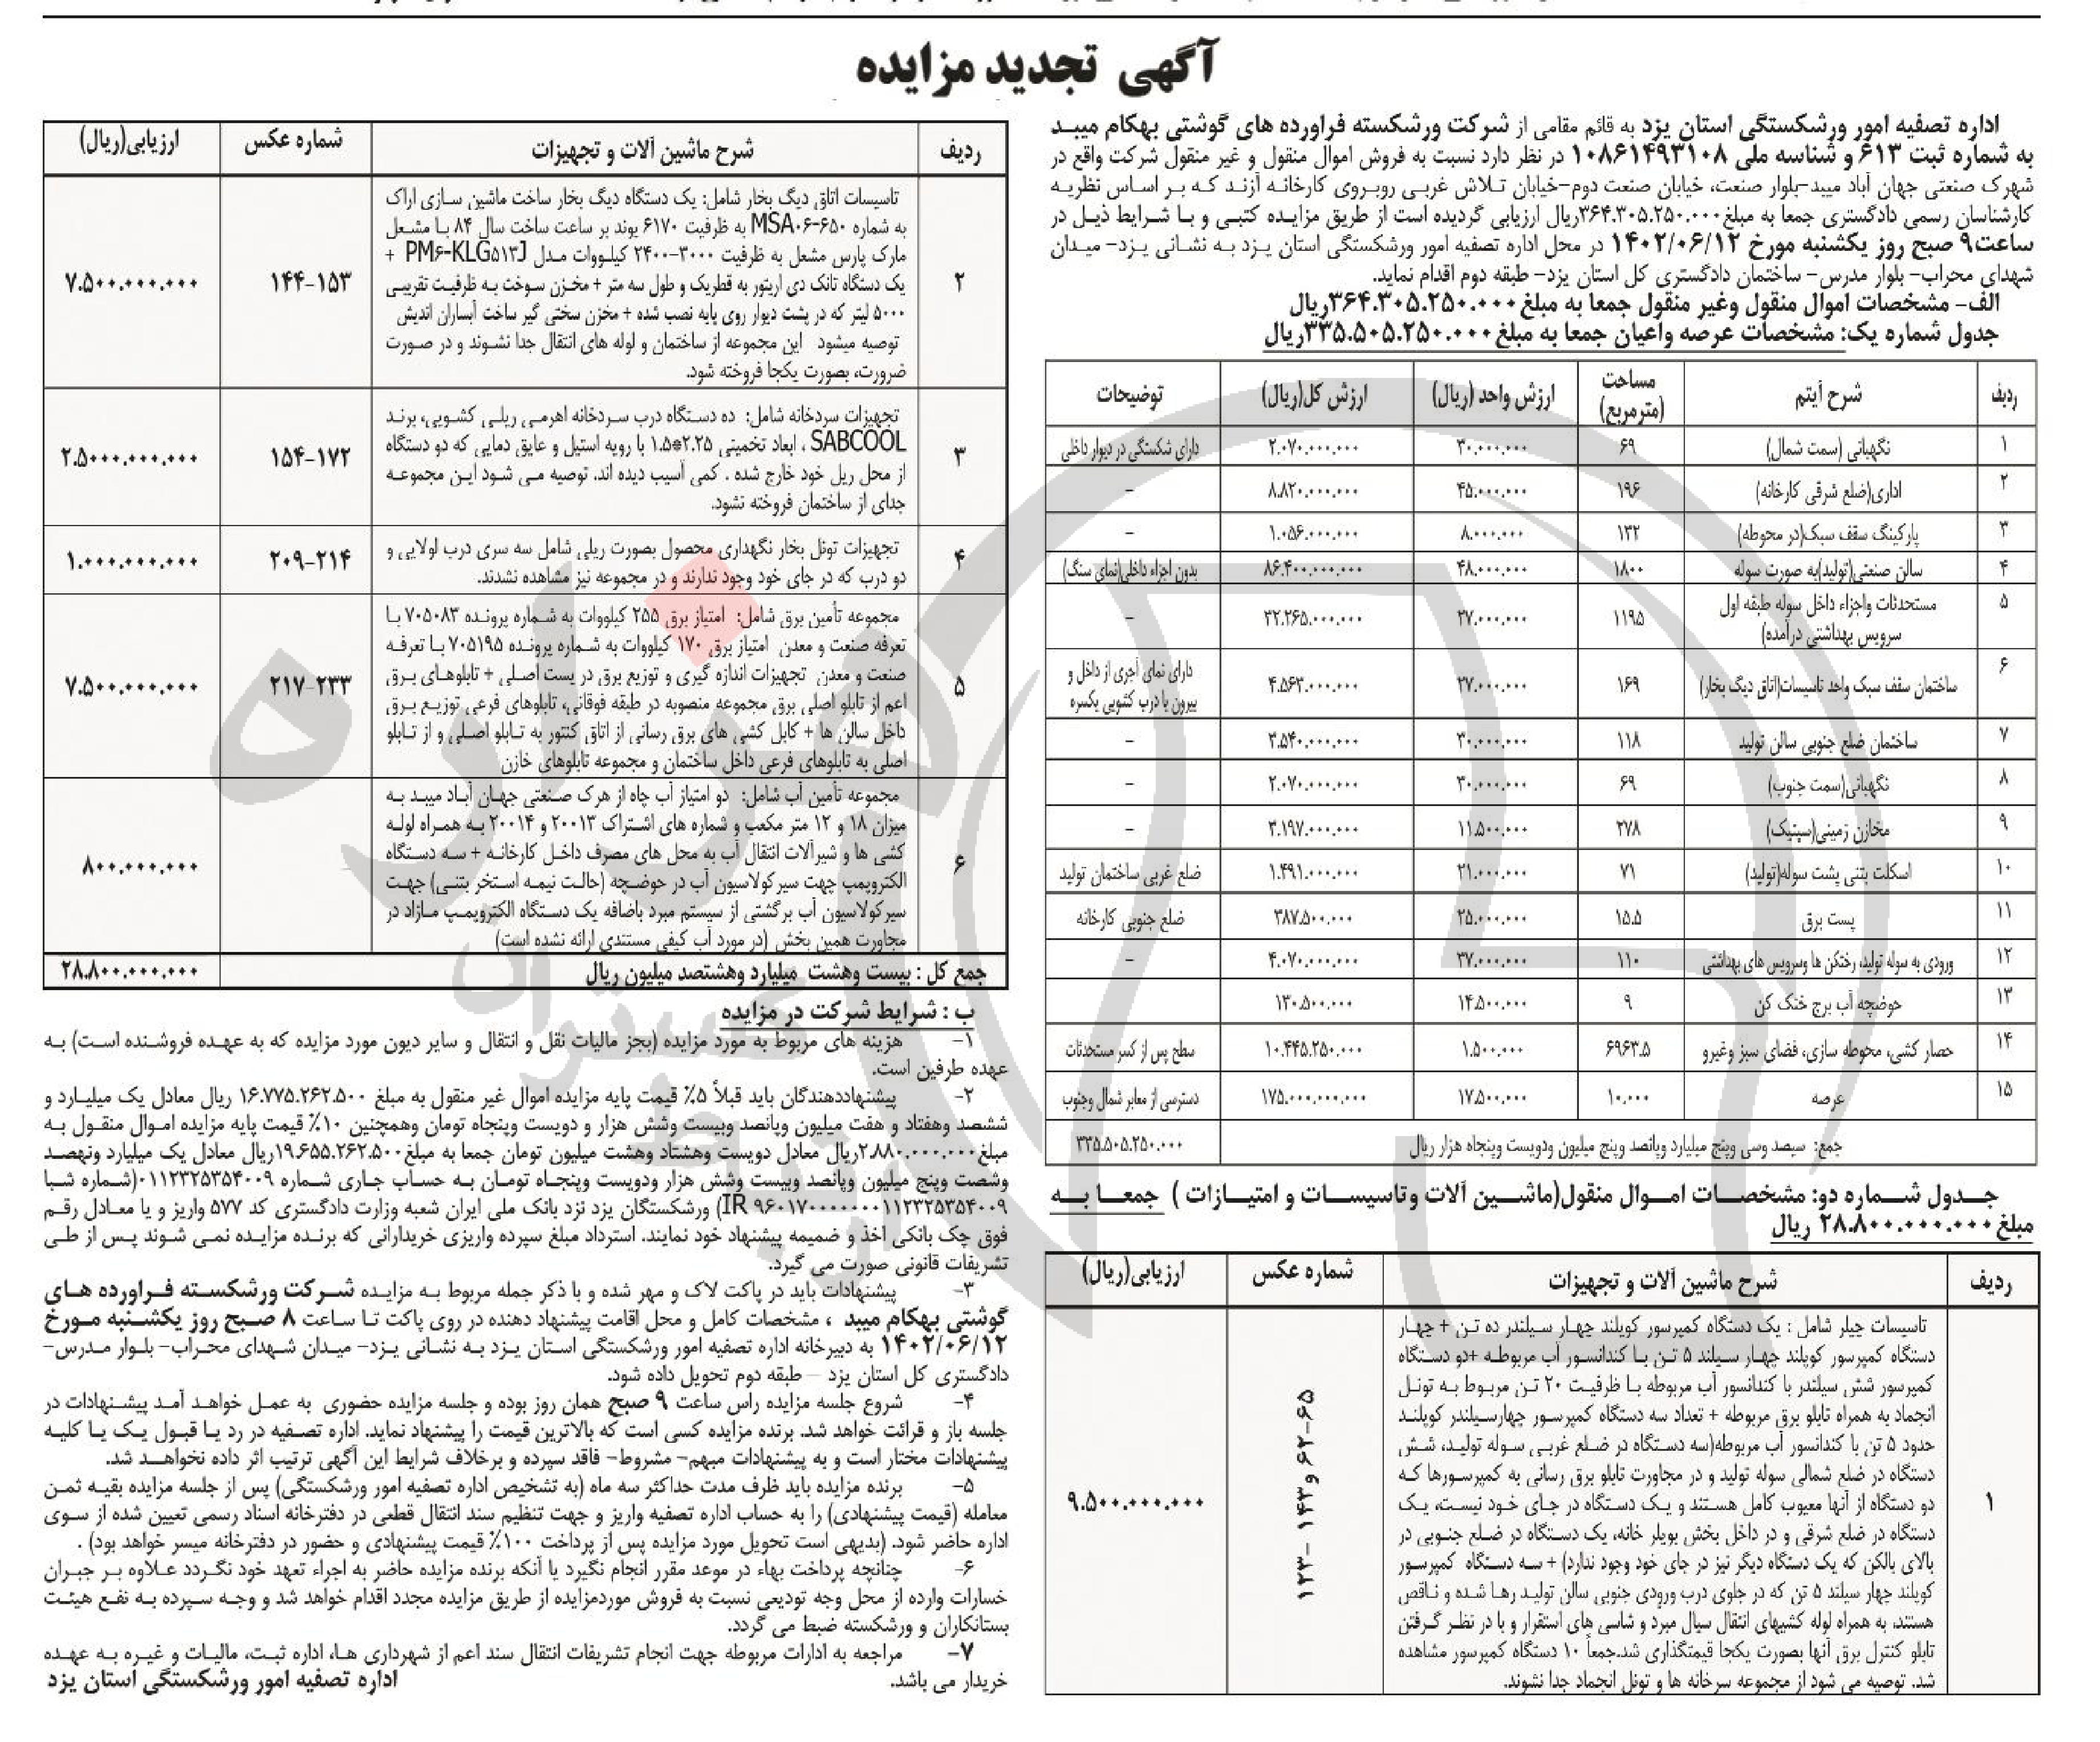 آگهی تجدید مزایده
اداره تصفیه امور ورشکستگی استان یزد به قائم مقامی از شرکت ورشکسته فراورده های گوشتی بهکام میبد
به شماره ثبت ۶۱۳ و شناسه ملی ۱۰۸۶۱۴۹۳۱۰۸ در نظر دارد نسبت به فروش اموال منقول و غیر منقول شرکت واقع در
شهرک صنعتی جهان آباد میبد-بلوار صنعت، خیابان صنعت دوم-خیابان تلاش غربی روبروی کارخانه آزند که بر اساس نظریه
کارشناسان رسمی دادگستری جمعا به مبلغ۳۶۴.۳۰۵.۲۵۰.۰۰۰ریال ارزیابی گردیده است از طریق مزایده کتبی و با شرایط ذیل در
ساعت۹ صبح روز یکشنبه مورخ ۱۴۰۲/۰۶/۱۲ در محل اداره تصفیه امور ورشکستگی استان یزد به نشانی یزد- میدان
شهدای محراب- بلوار مدرس- ساختمان دادگستری کل استان یزد- طبقه دوم اقدام نماید.
الف- مشخصات اموال منقول وغیر منقول جمعا به مبلغ۳۶۴.۳۰۵.۲۵۰.۰۰۰ریال
جدول شماره یک: مشخصات عرصه واعیان جمعا به مبلغ۳۳۵.۵۰۵.۲۵۰.۰۰۰ریال
ردیف شرح آیتم مساحت (مترمربع) ارزش واحد (ریال) ارزش کل(ریال) توضیحات
۱ نگهبانی (سمت شمال) ۶۹ ۳۰.۰۰۰.۰۰۰ ۲.۰۷۰.۰۰۰.۰۰۰ دارای شکستگی در دیوار داخلی
۲ اداری(ضلع شرقی کارخانه) ۱۹۶ ۴۵.۰۰۰.۰۰۰ ۸.۸۲۰.۰۰۰.۰۰۰ -
۳ پارکینگ سقف سبک(در محوطه) ۱۳۲ ۸.۰۰۰.۰۰۰ ۱.۰۵۶.۰۰۰.۰۰۰ -
۴ سالن صنعتی(تولید)به صورت سوله ۱۸۰۰ ۴۸.۰۰۰.۰۰۰ ۸۶.۴۰۰.۰۰۰.۰۰۰ بدون اجزاء داخلی(نمای سنگ)
۵ مستحدثات واجزاء داخل سوله طبقه اول
سرویس بهداشتی درآمده) ۱۱۹۵ ۲۷.۰۰۰.۰۰۰ ۳۲.۲۶۵.۰۰۰.۰۰۰ -
۶ ساختمان سقف سبک واحد تاسیسات(اتاق دیگ بخار) ۱۶۹ ۲۷.۰۰۰.۰۰۰ ۴.۵۶۳.۰۰۰.۰۰۰ دارای نمای آجری از داخل و
بیرون با درب کشویی یکسره
۷ ساختمان ضلع جنوبی سالن تولید ۱۱۸ ۳۰.۰۰۰.۰۰۰ ۳.۵۴۰.۰۰۰.۰۰۰ -
۸ نگهبانی(سمت جنوب) ۶۹ ۳۰.۰۰۰.۰۰۰ ۲.۰۷۰.۰۰۰.۰۰۰ -
۹ مخازن زمینی(سپتیک) ۲۷۸ ۱۱.۵۰۰.۰۰۰ ۳.۱۹۷.۰۰۰.۰۰۰ -
۱۰ اسکلت بتنی پشت سوله(تولید) ۷۱ ۲۱.۰۰۰.۰۰۰ ۱.۴۹۱.۰۰۰.۰۰۰ ضلع غربی ساختمان تولید
۱۱ پست برق ۱۵.۵ ۲۵.۰۰۰.۰۰۰ ۳۸۷.۵۰۰.۰۰۰ ضلع جنوبی کارخانه
۱۲ ورودی به سوله تولید، رختکن ها وسرویس های بهداشتی ۱۱۰ ۳۷.۰۰۰.۰۰۰ ۴.۰۷۰.۰۰۰.۰۰۰ -
۱۳ حوضچه آب برج خنک کن ۹ ۱۴.۵۰۰.۰۰۰ ۱۳۰.۵۰۰.۰۰۰
۱۴ حصار کشی، محوطه سازی، فضای سبز وغیرو ۶۹۶۳.۵ ۱.۵۰۰.۰۰۰ ۱۰.۴۴۵.۲۵۰.۰۰۰ سطح پس از کسر مستحدثات
۱۵ عرصه ۱۰.۰۰۰ ۱۷.۵۰۰.۰۰۰ ۱۷۵.۰۰۰.۰۰۰.۰۰۰ دسترسی از معابر شمال وجنوب
جمع: سیصد وسی وپنج میلیارد وپانصد وپنج میلیون ودویست وپنجاه هزار ریال ۳۳۵.۵۰۵.۲۵۰.۰۰۰
جدول شماره دو: مشخصات اموال منقول(ماشین آلات وتاسیسات و امتیازات ) جمعا به
مبلغ۲۸.۸۰۰.۰۰۰.۰۰۰ ریال
ردیف شرح ماشین آلات و تجهیزات شماره عکس ارزیابی(ریال)
۱ تاسیسات چیلر شامل : یک دستگاه کمپرسور کوپلند چهار سیلندر ده تن + چهار
دستگاه کمپرسور کوپلند چهار سیلند ۵ تن با کندانسور آب مربوطه +دو دستگاه
کمپرسور شش سیلندر با کندانسور آب مربوطه با ظرفیت ۲۰ تن مربوط به تونل
انجماد به همراه تابلو برق مربوطه + تعداد سه دستگاه کمپرسور چهارسیلندر کوپلند
حدود ۵ تن با کندانسور آب مربوطه(سه دستگاه در ضلع غربی سوله تولید، شش
دستگاه در ضلع شمالی سوله تولید و در مجاورت تابلو برق رسانی به کمپرسورها که
دو دستگاه از آنها معیوب کامل هستند و یک دستگاه در جای خود نیست، یک
دستگاه در ضلع شرقی و در داخل بخش بویلر خانه، یک دستگاه در ضلع جنوبی در
بالای بالکن که یک دستگاه دیگر نیز در جای خود وجود ندارد) + سه دستگاه کمپرسور
کوپلند چهار سیلند ۵ تن که در جلوی درب ورودی جنوبی سالن تولید رها شده و ناقص
هستند، به همراه لوله کشیهای انتقال سیال مبرد و شاسی های استقرار و با در نظر گرفتن
تابلو کنترل برق آنها بصورت یکجا قیمتگذاری شد.جمعاً ۱۰ دستگاه کمپرسور مشاهده
شد. توصیه می شود از مجموعه سرخانه ها و تونل انجماد جدا نشوند.
۶۲-۶۵ و ۱۴۳ - ۱۲۳
۹.۵۰۰.۰۰۰.۰۰۰
ردیف شرح ماشین آلات و تجهیزات شماره عکس ارزیابی(ریال)
۲ تاسیسات اتاق دیگ بخار شامل: یک دستگاه دیگ بخار ساخت ماشین سازی اراک
به شماره MSA۰۶-۶۵۰ به ظرفیت ۶۱۷۰ پوند بر ساعت ساخت سال ۸۴ با مشعل
مارک پارس مشعل به ظرفیت ۳۰۰۰-۲۴۰۰ کیلووات مدل PM۶-KLG۵۱۳J +
یک دستگاه تانک دی اریتور به قطریک و طول سه متر + مخزن سوخت به ظرفیت تقریبی
۵۰۰۰ لیتر که در پشت دیوار روی پایه نصب شده + مخزن سختی گیر ساخت آبساران اندیش
توصیه میشود این مجموعه از ساختمان و لوله های انتقال جدا نشوند و در صورت
ضرورت، بصورت یکجا فروخته شود.
۱۴۴-۱۵۳ ۷.۵۰۰.۰۰۰.۰۰۰
۳ تجهیزات سردخانه شامل: ده دستگاه درب سردخانه اهرمی ریلی کشویی، برند
SABCOOL ، ابعاد تخمینی ۲.۲۵*۱.۵ با رویه استیل و عایق دمایی که دو دستگاه
از محل ریل خود خارج شده ، کمی آسیب دیده اند، توصیه می شود این مجموعه
جدای از ساختمان فروخته نشود.
۱۵۴-۱۷۲ ۲.۵۰۰۰.۰۰۰.۰۰۰
۴ تجهیزات تونل بخار نگهداری محصول بصورت ریلی شامل سه سری درب لولایی و
دو درب که در جای خود وجود ندارند و در مجموعه نیز مشاهده نشدند.
۲۰۹-۲۱۴ ۱.۰۰۰.۰۰۰.۰۰۰
۵ مجموعه تأمین برق شامل: امتیاز برق ۲۵۵ کیلووات به شماره پرونده ۷۰۵۰۸۳ با
تعرفه صنعت و معدن امتیاز برق ۱۷۰ کیلووات به شماره پرونده ۷۰۵۱۹۵ با تعرفه
صنعت و معدن تجهیزات اندازه گیری و توزیع برق در پست اصلی + تابلوهای برق
اعم از تابلو اصلی برق مجموعه منصوبه در طبقه فوقانی، تابلوهای فرعی توزیع برق
داخل سالن ها + کابل کشی های برق رسانی از اتاق کنتور به تابلو اصلی و از تابلو
اصلی به تابلوهای فرعی داخل ساختمان و مجموعه تابلوهای خازن
۲۱۷-۲۳۳ ۷.۵۰۰.۰۰۰.۰۰۰
۶ مجموعه تأمین آب شامل: دو امتیاز آب چاه از هرک صنعتی جهان آباد میبد به
میزان ۱۸ و ۱۲ متر مکعب و شماره های اشتراک ۲۰۰۱۳ و ۲۰۰۱۴ به همراه لوله
کشی ها و شیرآلات انتقال آب به محل های مصرف داخل کارخانه + سه دستگاه
الکتروپمپ جهت سیرکولاسیون آب در حوضچه (حالت نیمه استخر بتنی) جهت
سیرکولاسیون آب برگشتی از سیستم مبرد باضافه یک دستگاه الکتروپمپ مازاد در
مجاورت همین بخش (در مورد آب کیفی مستندی ارائه نشده است)
۸۰۰.۰۰۰.۰۰۰
جمع کل : بیست وهشت میلیارد وهشتصد میلیون ریال ۲۸.۸۰۰.۰۰۰.۰۰۰
ب : شرایط شرکت در مزایده
۱- هزینه های مربوط به مورد مزایده (بجز مالیات نقل و انتقال و سایر دیون مورد مزایده که به عهده فروشنده است) به
عهده طرفین است.
۲- پیشنهاددهندگان باید قبلاً ۵٪ قیمت پایه مزایده اموال غیر منقول به مبلغ ۱۶.۷۷۵.۲۶۲.۵۰۰ ریال معادل یک میلیارد و
ششصد وهفتاد و هفت میلیون وپانصد وبیست وشش هزار و دویست وپنجاه تومان وهمچنین ۱۰٪ قیمت پایه مزایده اموال منقول به
مبلغ۲.۸۸۰.۰۰۰.۰۰۰ریال معادل دویست وهشتاد وهشت میلیون تومان جمعا به مبلغ۱۹.۶۵۵.۲۶۲.۵۰۰ریال معادل یک میلیارد ونهصد
وشصت وپنج میلیون وپانصد وبیست وشش هزار ودویست وپنجاه تومان به حساب جاری شماره ۰۱۱۲۳۲۵۳۵۴۰۰۹(شماره شبا
IR ۹۶۰۱۷۰۰۰۰۰۰۰۱۱۲۳۲۵۳۵۴۰۰۹) ورشکستگان یزد نزد بانک ملی ایران شعبه وزارت دادگستری کد ۵۷۷ واریز و یا معادل رقم
فوق چک بانکی اخذ و ضمیمه پیشنهاد خود نمایند. استرداد مبلغ سپرده واریزی خریدارانی که برنده مزایده نمی شوند پس از طی
تشریفات قانونی صورت می گیرد.
۳- پیشنهادات باید در پاکت لاک و مهر شده و با ذکر جمله مربوط به مزایده شرکت ورشکسته فراورده های
گوشتی بهکام میبد ، مشخصات کامل و محل اقامت پیشنهاد دهنده در روی پاکت تا ساعت ۸ صبح روز یکشنبه مورخ
۱۴۰۲/۰۶/۱۲ به دبیرخانه اداره تصفیه امور ورشکستگی استان یزد به نشانی یزد- میدان شهدای محراب- بلوار مدرس-
دادگستری کل استان یزد – طبقه دوم تحویل داده شود.
۴- شروع جلسه مزایده راس ساعت ۹ صبح همان روز بوده و جلسه مزایده حضوری به عمل خواهد آمد پیشنهادات در
جلسه باز و قرائت خواهد شد. برنده مزایده کسی است که بالاترین قیمت را پیشنهاد نماید. اداره تصفیه در رد یا قبول یک یا کلیه
پیشنهادات مختار است و به پیشنهادات مبهم- مشروط- فاقد سپرده و برخلاف شرایط این آگهی ترتیب اثر داده نخواهد شد.
۵- برنده مزایده باید ظرف مدت حداکثر سه ماه (به تشخیص اداره تصفیه امور ورشکستگی) پس از جلسه مزایده بقیه ثمن
معامله (قیمت پیشنهادی) را به حساب اداره تصفیه واریز و جهت تنظیم سند انتقال قطعی در دفترخانه اسناد رسمی تعیین شده از سوی
اداره حاضر شود. (بدیهی است تحویل مورد مزایده پس از پرداخت ۱۰۰٪ قیمت پیشنهادی و حضور در دفترخانه میسر خواهد بود) .
۶- چنانچه پرداخت بهاء در موعد مقرر انجام نگیرد یا آنکه برنده مزایده حاضر به اجراء تعهد خود نگردد علاوه بر جبران
خسارات وارده از محل وجه تودیعی نسبت به فروش موردمزایده از طریق مزایده مجدد اقدام خواهد شد و وجه سپرده به نفع هیئت
بستانکاران و ورشکسته ضبط می گردد.
۷- مراجعه به ادارات مربوطه جهت انجام تشریفات انتقال سند اعم از شهرداری ها، اداره ثبت، مالیات و غیره به عهده
خریدار می باشد.
اداره تصفیه امور ورشکستگی استان یزد